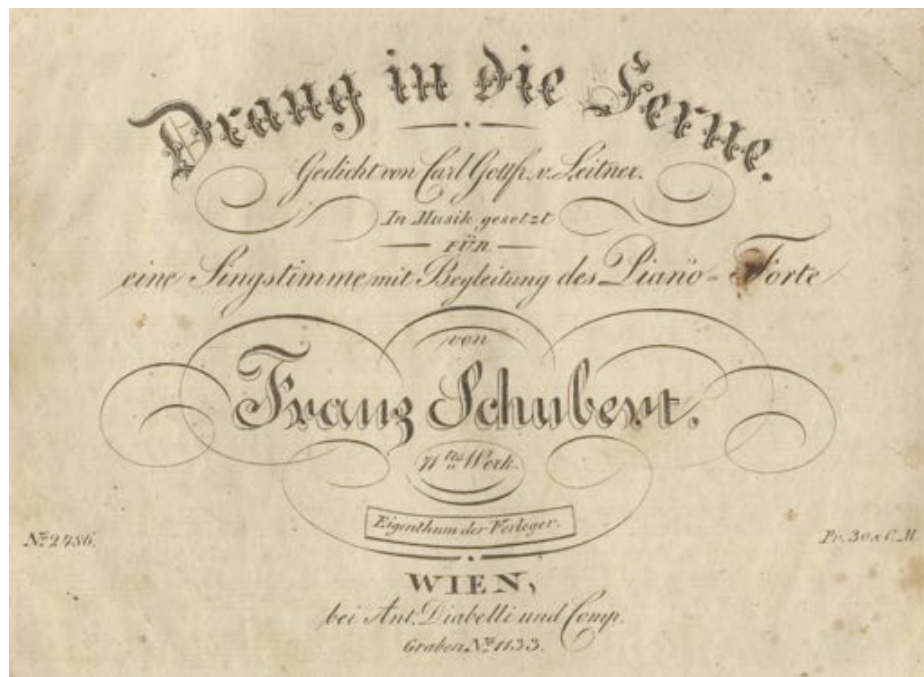 Drang in die Ferne.
Gedicht von Carl Gottfr. v. Leitner.
In Musik gesetzt
FÜR
eine Singstimme mit Begleitung des Piano-Forte
von
Franz Schubert.
71tes Werk.
Eigenthum der Verleger.
No. 2486.
Pr. 30 x C. M.
WIEN,
bei Ant. Diabelli und Comp.
Graben No. 1133.